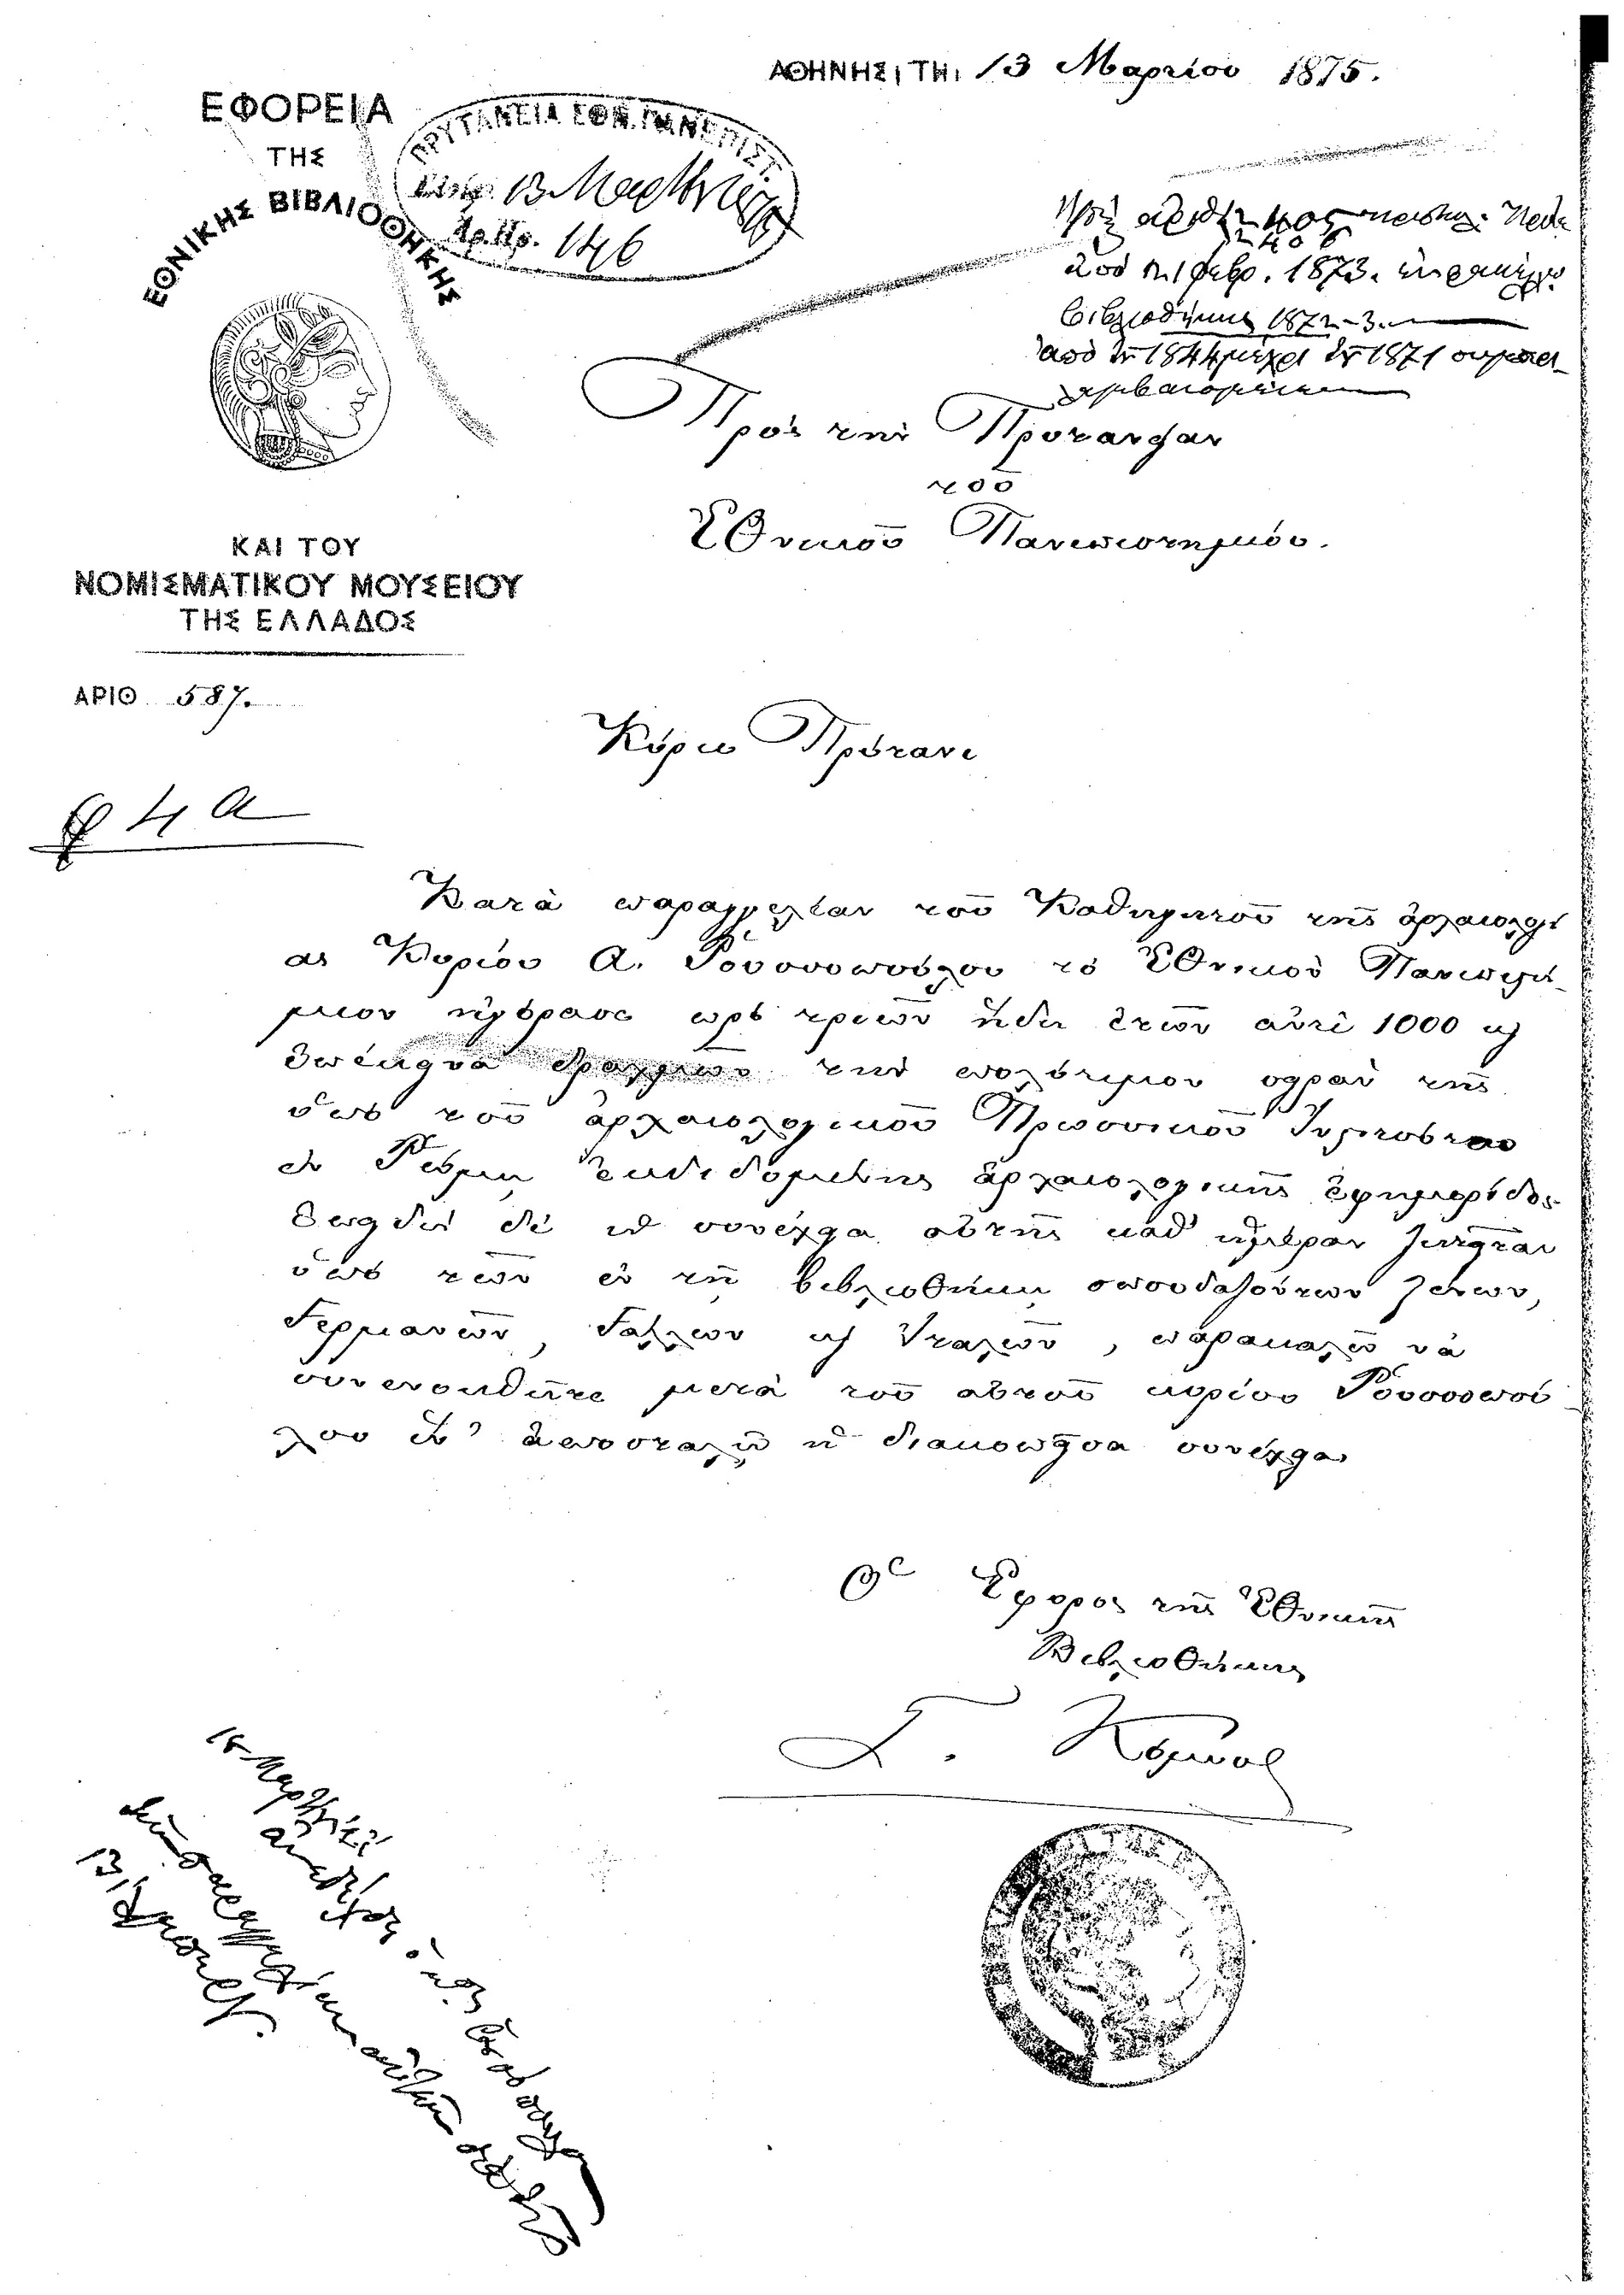 ΑΘΗΝΗΣΙ, ΤΗΙ 13 Μαρτίου 1875.
ΕΦΟΡΕΙΑ
ΤΗΣ
ΕΘΝΙΚΗΣ ΒΙΒΛΙΟΘΗΚΗΣ
ΚΑΙ ΤΟΥ
ΝΟΜΙΣΜΑΤΙΚΟΥ ΜΟΥΣΕΙΟΥ
ΤΗΣ ΕΛΛΑΔΟΣ
ΑΡΙΘ 587.
ΠΡΥΤΑΝΕΙΑ ΕΘΝ. ΠΑΝΕΠΙΣΤ.
13 Μαρτ
Αρ. Πρ. 146
2408
ἀπὸ 1 φεβρ. 1873.
βιβλιοθήκης 1872-3.
ἀπὸ τῆς 1844 μέχρι τῆς 1871 συμπερι-
λαμβανομένης
Πρὸς τὴν Πρυτανείαν
τοῦ
Ἐθνικοῦ Πανεπιστημίου.
Κύριε Πρύτανι
φ 4 α
Κατὰ παραγγελίαν τοῦ Καθηγητοῦ τῆς ἀρχαιολογί
ας Κυρίου Α. Ῥουσοπούλου τὸ Ἐθνικὸν Πανεπιστή-
μιον ἠγόρασε πρὸ τριῶν ἤδη ἐτῶν ἀντὶ 1000 καὶ
ἐπέκεινα δραχμῶν τὴν πολύτιμον σειρὰν τῆς
ὑπὸ τοῦ ἀρχαιολογικοῦ Πρωσσικοῦ Ἰνστιτούτου
ἐν Ῥώμῃ ἐκδιδομένης ἀρχαιολογικῆς ἐφημερίδος
Ἐπειδὴ δὲ ἡ συνέχεια αὐτῆς καθ' ἡμέραν ζητεῖται
ὑπὸ τῶν ἐν τῇ βιβλιοθήκῃ σπουδαζόντων ξένων,
Γερμανῶν, Γάλλων καὶ Ἰταλῶν, παρακαλῶ νὰ
συνεννοηθῆτε μετὰ τοῦ αὐτοῦ κυρίου Ῥουσοπού
λου ἵν' ἀποσταλῇ ἡ διακοπεῖσα συνέχεια
Ὁ Ἔφορος τῆς Ἐθνικῆς
Βιβλιοθήκης
Γ. Κρέμος